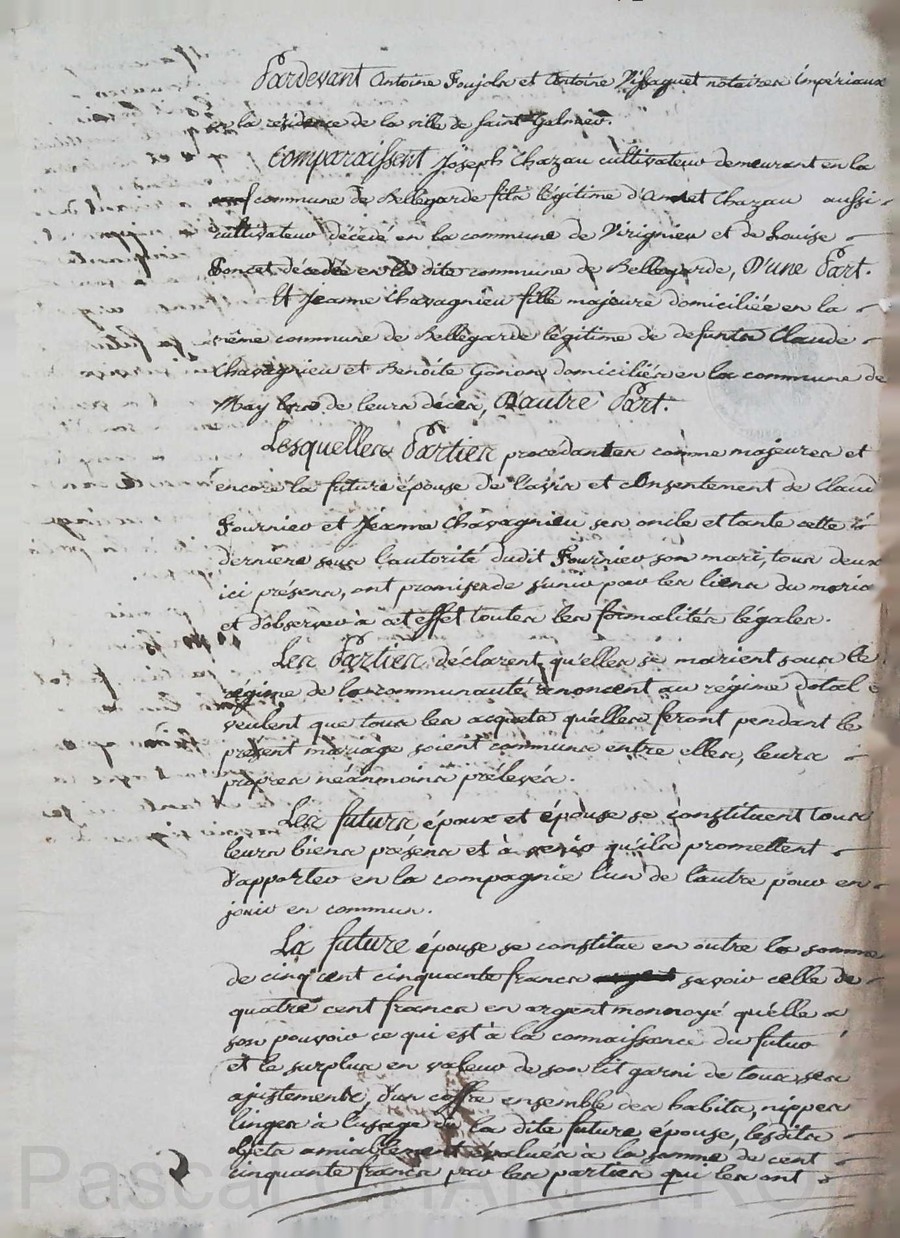 Pardevant Antoine Poujola et Antoine Vissaguet notaires impériaux
a la résidence de la ville de Saint Galmier.
Comparaissent Joseph Chazau cultivateur demeurant en la
commune de Bellegarde fils légitime d'Amet Chazau aussi
cultivateur décédé en la commune de Virignieu et de Louise
Poncet décédée en la dite commune de Bellegarde, D'une Part.
Et Jeanne Chavagnieu fille majeure domiciliée en la
même commune de Bellegarde légitime de defunts Claude
Chavagnieu et Benoite Gonon domiciliés en la commune de
May lors de leurs décès, D'autre Part.
Lesquelles Parties procédantes comme majeures et
encore la future épouse de l'avis et consentement de Claud
Fournier et Jeanne Chavagnieu ses oncle et tante cette
dernière sous l'autorité dudit Fournier son mari, tous deux
ici présens, ont promis de s'unir par les liens du maria
et d'observer à cet effet toutes les formalités légales.
Les Parties déclarent qu'elles se marient sous le
régime de la communauté, renoncent au régime dotal e
veulent que tous les acquets qu'elles feront pendant le
présent mariage soient communs entre elles, leurs
propres néanmoins prélevés.
Les futurs époux et épouse se constituent tous
leurs biens présens et à venir qu'ils promettent
d'apporter en la compagnie l'un de l'autre pour en
jouir en commun.
La future épouse se constitue en outre la somme
de cinq cent cinquante francs savoir celle de
quatre cent francs en argent monnoyé qu'elle a
son pouvoir ce qui est à la connaissance du futur
et le surplus en valeur de son lit garni de tous ses
ajustements, d'un coffre ensemble des habits, nippes
linges à l'usage de la dite future épouse, lesdits
objets amiablement évalués à la somme de cent
cinquante francs par les parties qui les ont
Pascal CHARPETRON